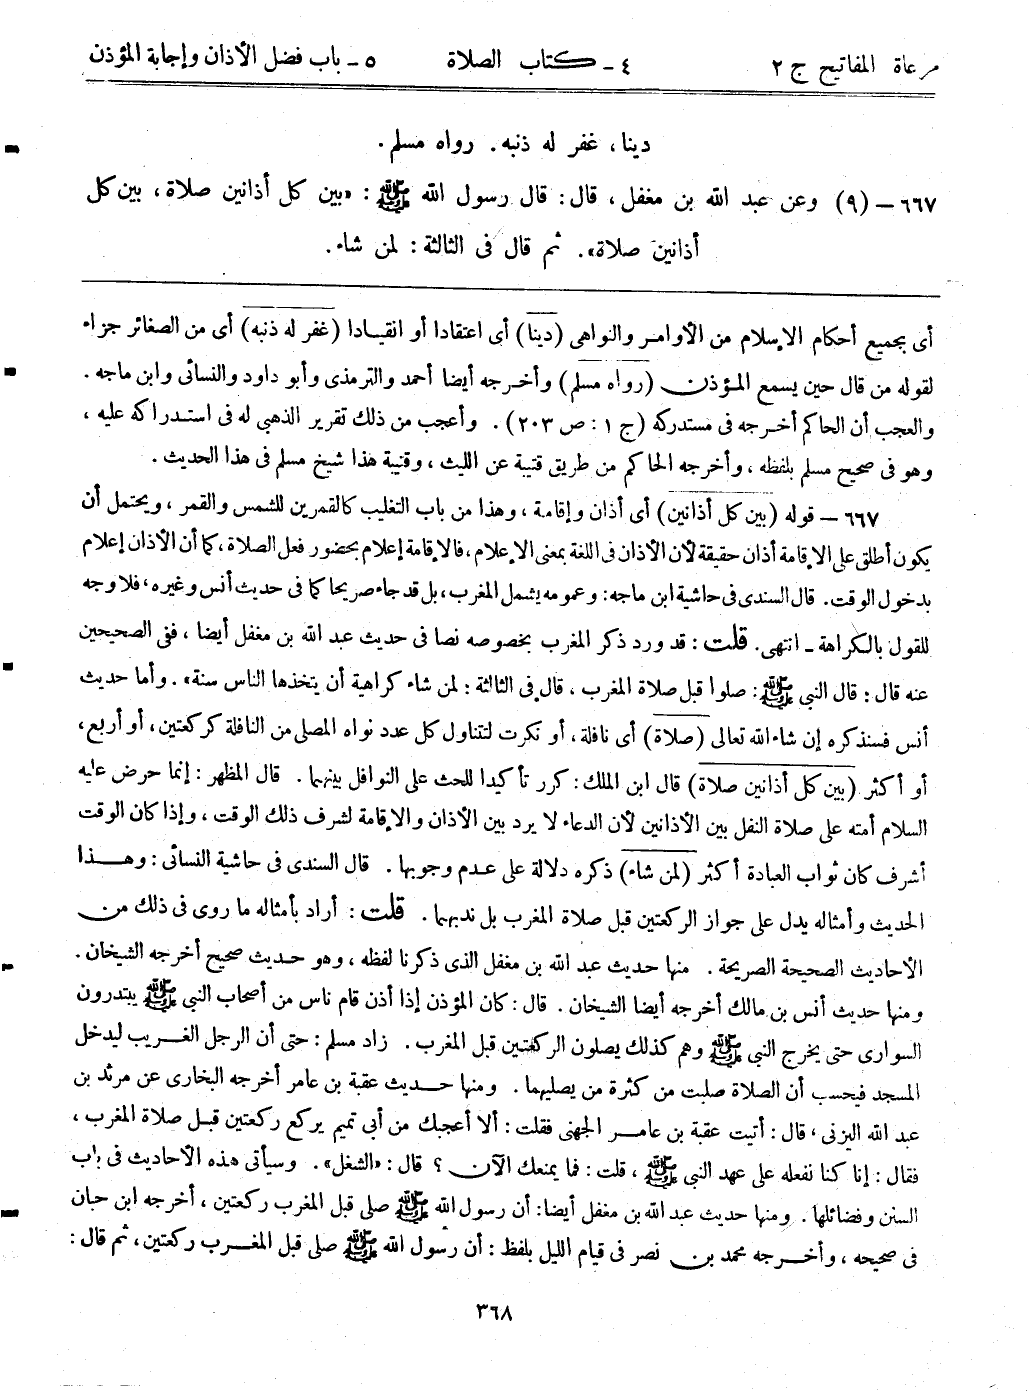 مرعاة المفاتيح ج ٢ ٤ ـ كتاب الصلاة ٥ ـ باب فضل الأذان وإجابة المؤذن
دينا، غفر له ذنبه. رواه مسلم.
٦٦٧ – (٩) وعن عبد الله بن مغفل، قال: قال رسول الله ﷺ: «بين كل أذانين صلاة، بين كل
أذانين صلاة». ثم قال فى الثالثة: لمن شاء.
أى بجميع أحكام الإسلام من الأوامر والنواهى (دينا) أى اعتقادا أو انقيادا (غفر له ذنبه) أى من الصغائر جزاء
لقوله من قال حين يسمع المؤذن (رواه مسلم) وأخرجه أيضا أحمد والترمذى وأبو داود والنسائى وابن ماجه.
والعجب أن الحاكم أخرجه فى مستدركه (ج ١: ص ٢٠٣). وأعجب من ذلك تقرير الذهبى له فى استدراكه عليه،
وهو فى صحيح مسلم بلفظه، وأخرجه الحاكم من طريق قتيبة عن الليث، وقتيبة هذا شيخ مسلم فى هذا الحديث.
٦٦٧ – قوله (بين كل أذانين) أى أذان وإقامة، وهذا من باب التغليب كالقمرين للشمس والقمر، ويحتمل أن
يكون أطلق على الإقامة أذان حقيقة لأن الأذان فى اللغة بمعنى الإعلام، فالإقامة إعلام بحضور فعل الصلاة، كما أن الأذان إعلام
بدخول الوقت. قال السندى فى حاشية ابن ماجه: وعمومه يشمل المغرب، بل قد جاء صريحا كما فى حديث أنس وغيره، فلا وجه
للقول بالكراهة ـ انتهى. قلت: قد ورد ذكر المغرب بخصوصه نصا فى حديث عبد الله بن مغفل أيضا، ففى الصحيحين
عنه قال: قال النبى ﷺ: صلوا قبل صلاة المغرب، قال فى الثالثة: لمن شاء كراهية أن يتخذها الناس سنة». وأما حديث
أنس فسنذكره إن شاء الله تعالى (صلاة) أى نافلة، أو نكرت لتناول كل عدد نواه المصلى من النافلة كركعتين، أو أربع،
أو أكثر (بين كل أذانين صلاة) قال ابن الملك: كرر تأكيدا للحث على النوافل بينهما. قال المظهر: إنما حرض عليه
السلام أمته على صلاة النفل بين الأذانين لأن الدعاء لا يرد بين الأذان والإقامة لشرف ذلك الوقت، وإذا كان الوقت
أشرف كان ثواب العبادة أكثر (لمن شاء) ذكره دلالة على عدم وجوبها. قال السندى فى حاشية النسائى: وهذا
الحديث وأمثاله يدل على جواز الركعتين قبل صلاة المغرب بل ندبهما. قلت: أراد بأمثاله ما روى فى ذلك من
الأحاديث الصحيحة الصريحة. منها حديث عبد الله بن مغفل الذى ذكرنا لفظه، وهو حديث صحيح أخرجه الشيخان.
ومنها حديث أنس بن مالك أخرجه أيضا الشيخان. قال: كان المؤذن إذا أذن قام ناس من أصحاب النبى ﷺ يبتدرون
السوارى حتى يخرج النبى ﷺ وهم كذلك يصلون الركعتين قبل المغرب. زاد مسلم: حتى أن الرجل الغريب ليدخل
المسجد فيحسب أن الصلاة صليت من كثرة من يصليهما. ومنها حديث عقبة بن عامر أخرجه البخارى عن مرثد بن
عبد الله اليزنى، قال: أتيت عقبة بن عامر الجهنى فقلت: ألا أعجبك من أبى تميم يركع ركعتين قبل صلاة المغرب،
فقال: إنا كنا نفعله على عهد النبى ﷺ، قلت: فما يمنعك الآن؟ قال: «الشغل». وسيأتى هذه الأحاديث فى باب
السنن وفضائلها. ومنها حديث عبد الله بن مغفل أيضا: أن رسول الله ﷺ صلى قبل المغرب ركعتين، أخرجه ابن حبان
فى صحيحه، وأخرجه محمد بن نصر فى قيام الليل بلفظ: أن رسول الله ﷺ صلى قبل المغرب ركعتين، ثم قال:
٣٦٨